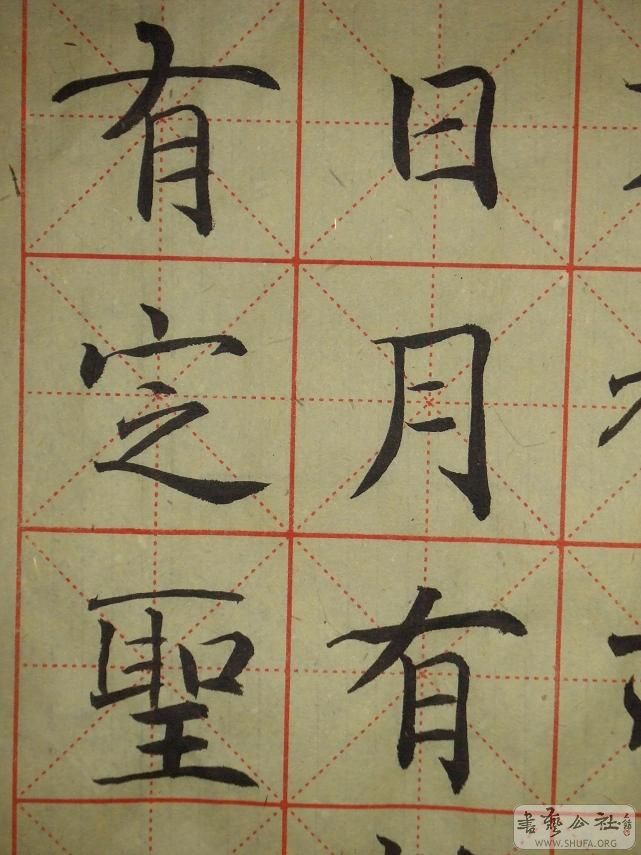 日月有
有定聖
書藝公社
WWW.SHUFA.ORG